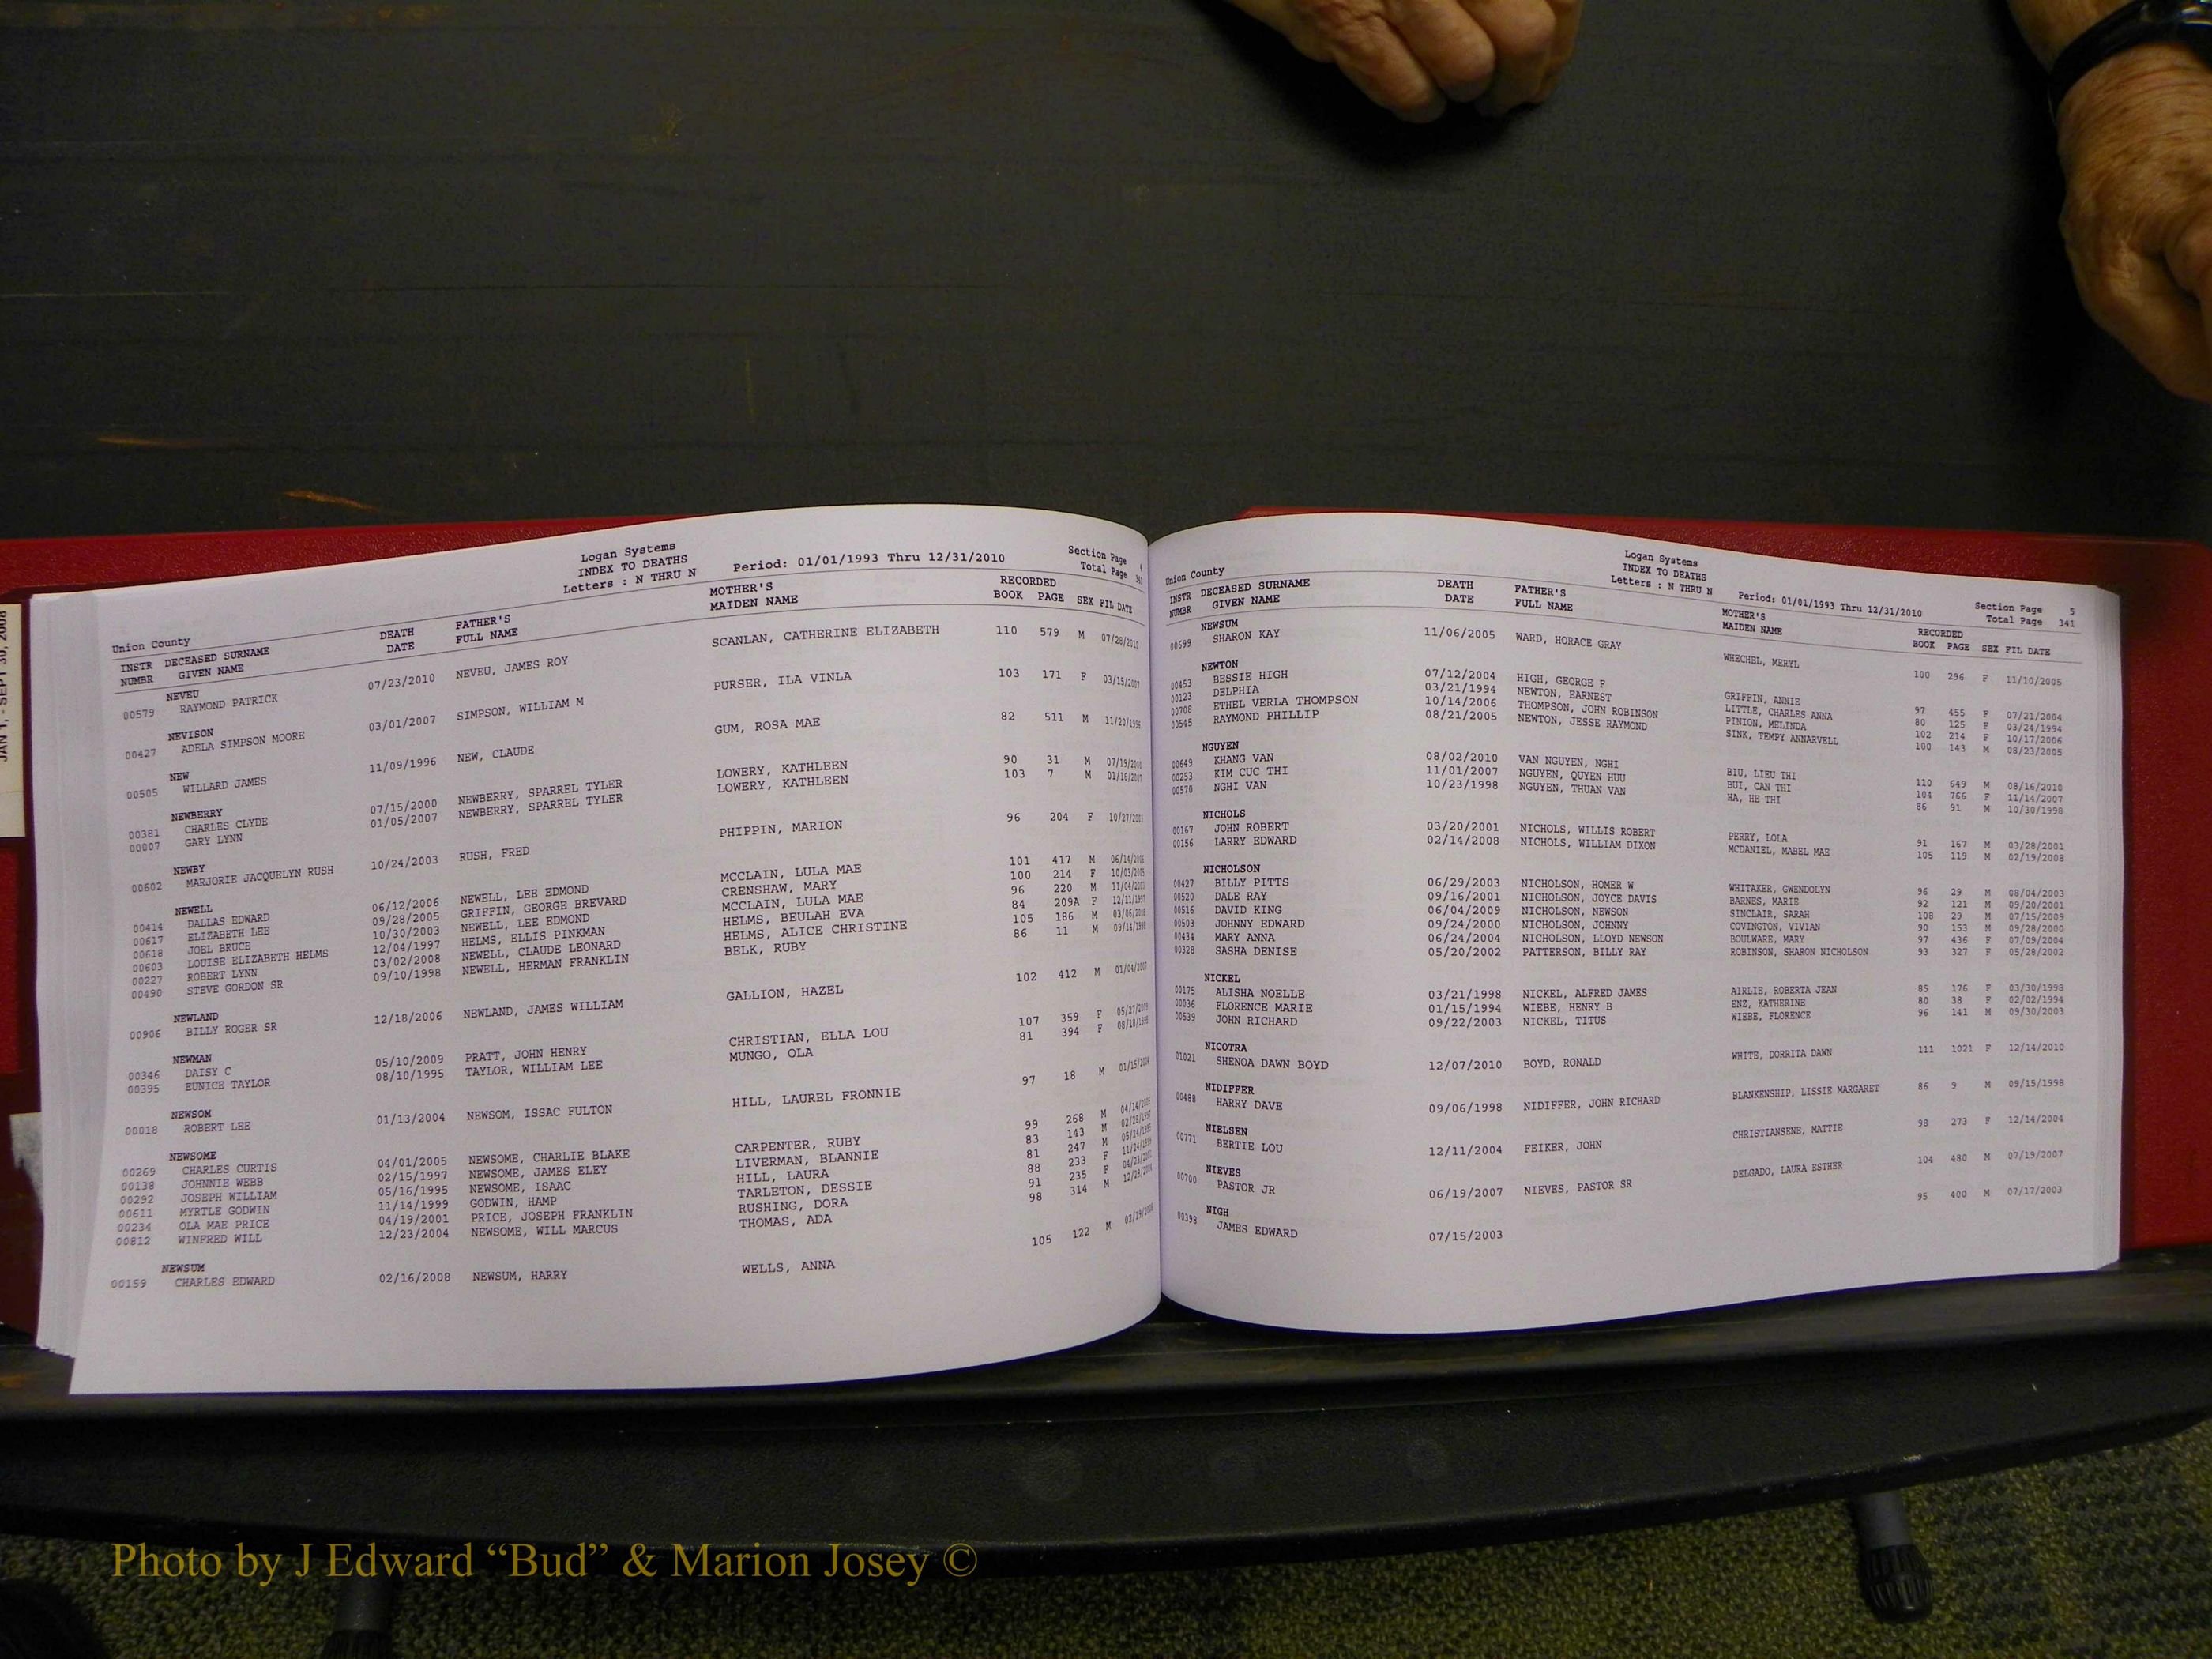 JAN 1, - SEPT 30, 2008
Union County
Logan Systems
INDEX TO DEATHS
Letters : N THRU N
Period: 01/01/1993 Thru 12/31/2010
Section Page
Total Page
INSTR DECEASED SURNAME DEATH FATHER'S MOTHER'S RECORDED
NUMBR GIVEN NAME DATE FULL NAME MAIDEN NAME BOOK PAGE SEX FIL DATE
NEVEU
00579 RAYMOND PATRICK 07/23/2010 NEVEU, JAMES ROY SCANLAN, CATHERINE ELIZABETH 110 579 M 07/28/2010
NEVISON
00427 ADELA SIMPSON MOORE 03/01/2007 SIMPSON, WILLIAM M PURSER, ILA VINLA 103 171 F 03/15/2007
NEW
00505 WILLARD JAMES 11/09/1996 NEW, CLAUDE GUM, ROSA MAE 82 511 M 11/20/1996
NEWBERRY
00381 CHARLES CLYDE 07/15/2000 NEWBERRY, SPARREL TYLER LOWERY, KATHLEEN 90 31 M 07/19/2000
00007 GARY LYNN 01/05/2007 NEWBERRY, SPARREL TYLER LOWERY, KATHLEEN 103 7 M 01/16/2007
NEWBY
00602 MARJORIE JACQUELYN RUSH 10/24/2003 RUSH, FRED PHIPPIN, MARION 96 204 F 10/27/2003
NEWELL
00414 DALLAS EDWARD 06/12/2006 NEWELL, LEE EDMOND MCCLAIN, LULA MAE 101 417 M 06/14/2006
00617 ELIZABETH LEE 09/28/2005 GRIFFIN, GEORGE BREVARD CRENSHAW, MARY 100 214 F 10/03/2005
00618 JOEL BRUCE 10/30/2003 NEWELL, LEE EDMOND MCCLAIN, LULA MAE 96 220 M 11/04/2003
00603 LOUISE ELIZABETH HELMS 12/04/1997 HELMS, ELLIS PINKMAN HELMS, BEULAH EVA 84 209A F 12/11/1997
00227 ROBERT LYNN 03/02/2008 NEWELL, CLAUDE LEONARD HELMS, ALICE CHRISTINE 105 186 M 03/06/2008
00490 STEVE GORDON SR 09/10/1998 NEWELL, HERMAN FRANKLIN BELK, RUBY 86 11 M 09/14/1998
NEWLAND
00906 BILLY ROGER SR 12/18/2006 NEWLAND, JAMES WILLIAM GALLION, HAZEL 102 412 M 01/04/2007
NEWMAN
00346 DAISY C 05/10/2009 PRATT, JOHN HENRY CHRISTIAN, ELLA LOU 107 359 F 05/27/2009
00395 EUNICE TAYLOR 08/10/1995 TAYLOR, WILLIAM LEE MUNGO, OLA 81 394 F 08/18/1995
NEWSOM
00018 ROBERT LEE 01/13/2004 NEWSOM, ISSAC FULTON HILL, LAUREL FRONNIE 97 18 M 01/15/2004
NEWSOME
00269 CHARLES CURTIS 04/01/2005 NEWSOME, CHARLIE BLAKE CARPENTER, RUBY 99 268 M 04/14/2005
00138 JOHNNIE WEBB 02/15/1997 NEWSOME, JAMES ELEY LIVERMAN, BLANNIE 83 143 M 02/28/1997
00292 JOSEPH WILLIAM 05/16/1995 NEWSOME, ISAAC HILL, LAURA 81 247 M 05/24/1995
00611 MYRTLE GODWIN 11/14/1999 GODWIN, HAMP TARLETON, DESSIE 88 233 F 11/24/1999
00234 OLA MAE PRICE 04/19/2001 PRICE, JOSEPH FRANKLIN RUSHING, DORA 91 235 F 04/23/2001
00812 WINFRED WILL 12/23/2004 NEWSOME, WILL MARCUS THOMAS, ADA 98 314 M 12/28/2004
NEWSUM
00159 CHARLES EDWARD 02/16/2008 NEWSUM, HARRY WELLS, ANNA 105 122 M 02/19/2008
Union County
Logan Systems
INDEX TO DEATHS
Letters : N THRU N
Period: 01/01/1993 Thru 12/31/2010
Section Page 5
Total Page 341
INSTR DECEASED SURNAME DEATH FATHER'S MOTHER'S RECORDED
NUMBR GIVEN NAME DATE FULL NAME MAIDEN NAME BOOK PAGE SEX FIL DATE
NEWSUM
00699 SHARON KAY 11/06/2005 WARD, HORACE GRAY WHECHEL, MERYL 100 296 F 11/10/2005
NEWTON
00453 BESSIE HIGH 07/12/2004 HIGH, GEORGE F GRIFFIN, ANNIE 97 455 F 07/21/2004
00123 DELPHIA 03/21/1994 NEWTON, EARNEST LITTLE, CHARLES ANNA 80 125 F 03/24/1994
00708 ETHEL VERLA THOMPSON 10/14/2006 THOMPSON, JOHN ROBINSON PINION, MELINDA 102 214 F 10/17/2006
00545 RAYMOND PHILLIP 08/21/2005 NEWTON, JESSE RAYMOND SINK, TEMPY ANNARVELL 100 143 M 08/23/2005
NGUYEN
00649 KHANG VAN 08/02/2010 VAN NGUYEN, NGHI BIU, LIEU THI 110 649 M 08/16/2010
00253 KIM CUC THI 11/01/2007 NGUYEN, QUYEN HUU BUI, CAN THI 104 766 F 11/14/2007
00570 NGHI VAN 10/23/1998 NGUYEN, THUAN VAN HA, HE THI 86 91 M 10/30/1998
NICHOLS
00167 JOHN ROBERT 03/20/2001 NICHOLS, WILLIS ROBERT PERRY, LOLA 91 167 M 03/28/2001
00156 LARRY EDWARD 02/14/2008 NICHOLS, WILLIAM DIXON MCDANIEL, MABEL MAE 105 119 M 02/19/2008
NICHOLSON
00427 BILLY PITTS 06/29/2003 NICHOLSON, HOMER W WHITAKER, GWENDOLYN 96 29 M 08/04/2003
00520 DALE RAY 09/16/2001 NICHOLSON, JOYCE DAVIS BARNES, MARIE 92 121 M 09/20/2001
00516 DAVID KING 06/04/2009 NICHOLSON, NEWSON SINCLAIR, SARAH 108 29 M 07/15/2009
00503 JOHNNY EDWARD 09/24/2000 NICHOLSON, JOHNNY COVINGTON, VIVIAN 90 153 M 09/28/2000
00434 MARY ANNA 06/24/2004 NICHOLSON, LLOYD NEWSON BOULWARE, MARY 97 436 F 07/09/2004
00328 SASHA DENISE 05/20/2002 PATTERSON, BILLY RAY ROBINSON, SHARON NICHOLSON 93 327 F 05/28/2002
NICKEL
00175 ALISHA NOELLE 03/21/1998 NICKEL, ALFRED JAMES AIRLIE, ROBERTA JEAN 85 176 F 03/30/1998
00036 FLORENCE MARIE 01/15/1994 WIEBE, HENRY B ENZ, KATHERINE 80 38 F 02/02/1994
00539 JOHN RICHARD 09/22/2003 NICKEL, TITUS WIEBE, FLORENCE 96 141 M 09/30/2003
NICOTRA
01021 SHENOA DAWN BOYD 12/07/2010 BOYD, RONALD WHITE, DORRITA DAWN 111 1021 F 12/14/2010
NIDIFFER
00488 HARRY DAVE 09/06/1998 NIDIFFER, JOHN RICHARD BLANKENSHIP, LISSIE MARGARET 86 9 M 09/15/1998
NIELSEN
00771 BERTIE LOU 12/11/2004 FEIKER, JOHN CHRISTIANSENE, MATTIE 98 273 F 12/14/2004
NIEVES
00700 PASTOR JR 06/19/2007 NIEVES, PASTOR SR DELGADO, LAURA ESTHER 104 480 M 07/19/2007
NIGH
00398 JAMES EDWARD 07/15/2003 95 400 M 07/17/2003
Photo by J Edward “Bud” & Marion Josey ©